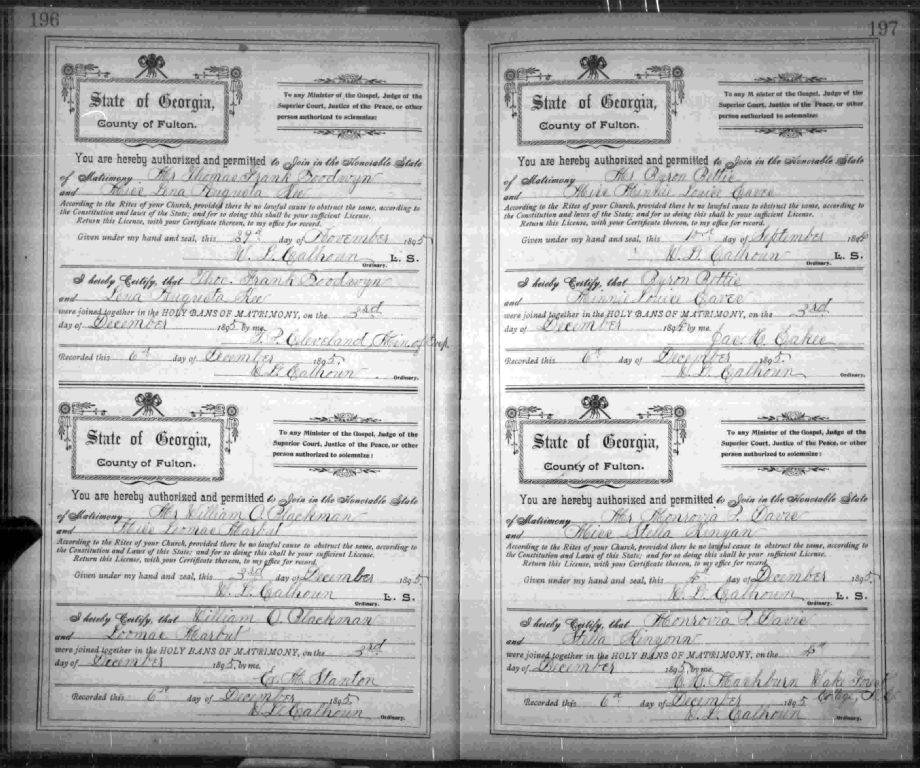 196
State of Georgia,
County of Fulton.
To any Minister of the Gospel, Judge of the
Superior Court, Justice of the Peace, or other
person authorized to solemnize:
You are hereby authorized and permitted to Join in the Honorable State
of Matrimony Mr Thomas Frank Goodwyn
and Miss Lena Augusta
According to the Rites of your Church, provided there be no lawful cause to obstruct the same, according to
the Constitution and laws of this State; and for so doing this shall be your sufficient License.
Return this License, with your Certificate thereon, to my office for record.
Given under my hand and seal, this 29th day of November 1895
W. L. Calhoun L. S.
Ordinary.
I hereby Certify, that Thos. Frank Goodwyn
and Lena Augusta
were joined together in the HOLY BANS OF MATRIMONY, on the 3rd
day of December 1895 by me.
Cleveland, Min of Gosp.
Recorded this 6th day of December 1895.
W. L. Calhoun Ordinary.
State of Georgia,
County of Fulton.
To any Minister of the Gospel, Judge of the
Superior Court, Justice of the Peace, or other
person authorized to solemnize:
You are hereby authorized and permitted to Join in the Honorable State
of Matrimony Mr William O. Blackman
and Miss Loomae Marbut
According to the Rites of your Church, provided there be no lawful cause to obstruct the same, according to
the Constitution and Laws of this State; and for so doing this shall be your sufficient License.
Return this License, with your Certificate thereon, to my office for record.
Given under my hand and seal, this 3rd day of December 1895.
W. L. Calhoun L. S.
Ordinary.
I hereby Certify, that William O. Blackman
and Loomae Marbut
were joined together in the HOLY BANS OF MATRIMONY, on the 3rd
day of December 1895, by me.
E. M. Stanton
Recorded this 6th day of December 1895
W. L. Calhoun Ordinary.
197
State of Georgia,
County of Fulton.
To any Minister of the Gospel, Judge of the
Superior Court, Justice of the Peace, or other
person authorized to solemnize:
You are hereby authorized and permitted to Join in the Honorable State
of Matrimony Mr Byron Bettie
and Miss Minnie Louise
According to the Rites of your Church, provided there be no lawful cause to obstruct the same, according to
the Constitution and laws of this State; and for so doing this shall be your sufficient License.
Return this License, with your Certificate thereon, to my office for record.
Given under my hand and seal, this day of September 189
W. L. Calhoun L. S.
Ordinary.
I hereby Certify, that Byron Bettie
and Minnie Louise
were joined together in the HOLY BANS OF MATRIMONY, on the 3rd
day of December 189 by me.
Recorded this 6th day of December 1895
W. L. Calhoun Ordinary.
State of Georgia,
County of Fulton.
To any Minister of the Gospel, Judge of the
Superior Court, Justice of the Peace, or other
person authorized to solemnize:
You are hereby authorized and permitted to Join in the Honorable State
of Matrimony Mr Monrovia Davis
and Miss Stella Kinyan
According to the Rites of your Church, provided there be no lawful cause to obstruct the same, according to
the Constitution and Laws of this State; and for so doing this shall be your sufficient License.
Return this License, with your Certificate thereon, to my office for record.
Given under my hand and seal, this 4th day of December 1895.
W. L. Calhoun L. S.
Ordinary.
I hereby Certify, that Monrovia Davis
and Stella Kinyonn
were joined together in the HOLY BANS OF MATRIMONY, on the 4th
day of December 1895 by me.
Mashburn Wake Forest
College, N. C.
Recorded this 6th day of December 1895
W. L. Calhoun Ordinary.